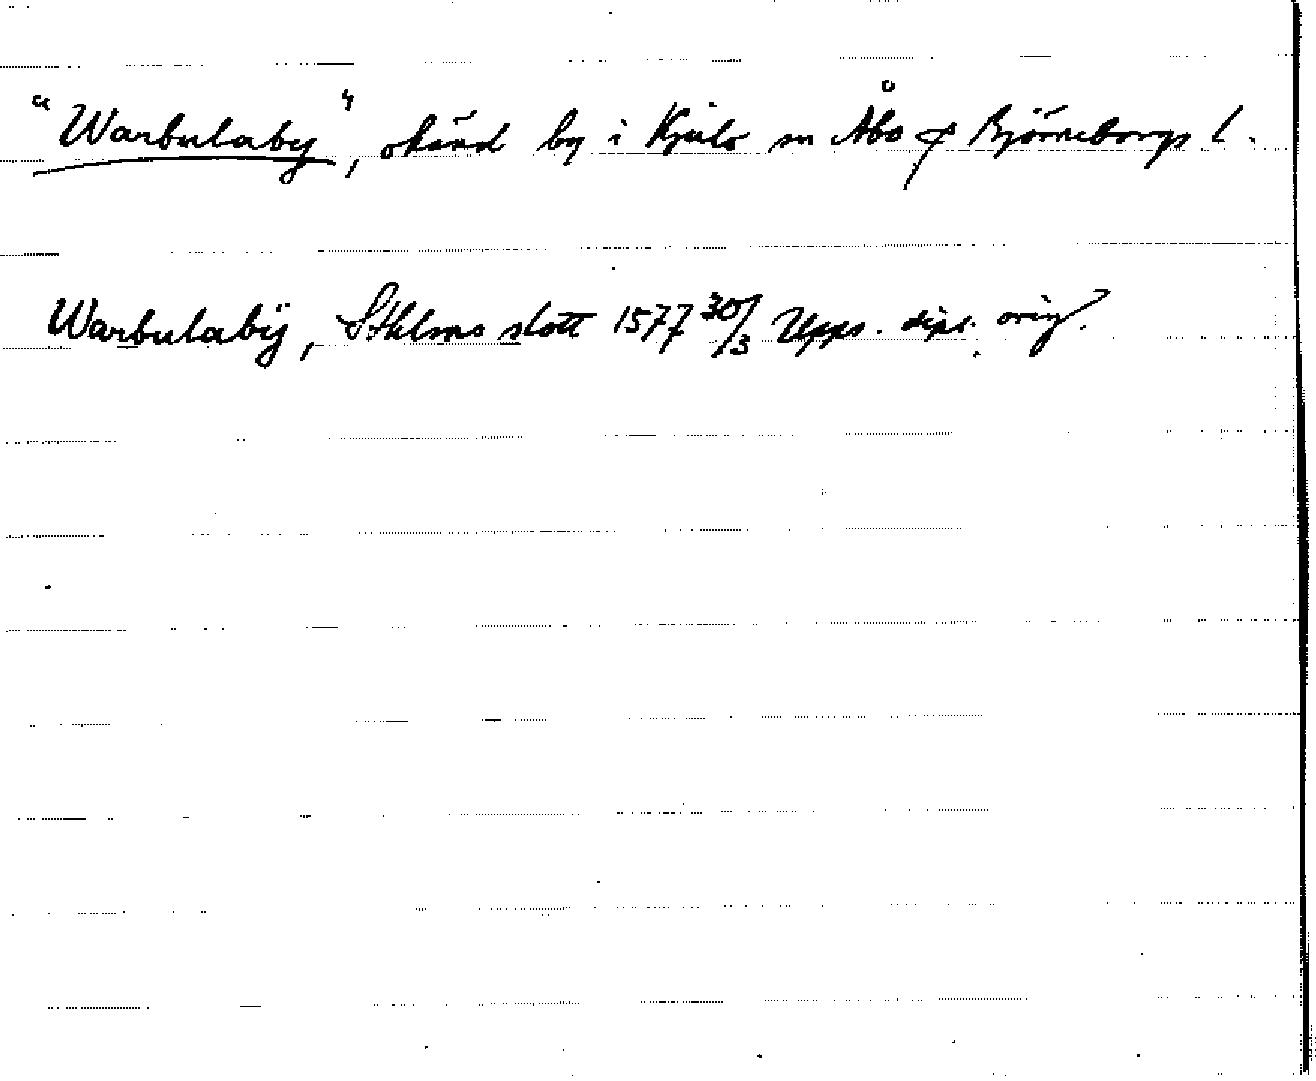 "Warbulaby", okänd by i Kjulo sn Åbo & Björneborgs l.
Warbulabÿ, Sthlms slott 1577 30/3 Upps. dipl. orig.